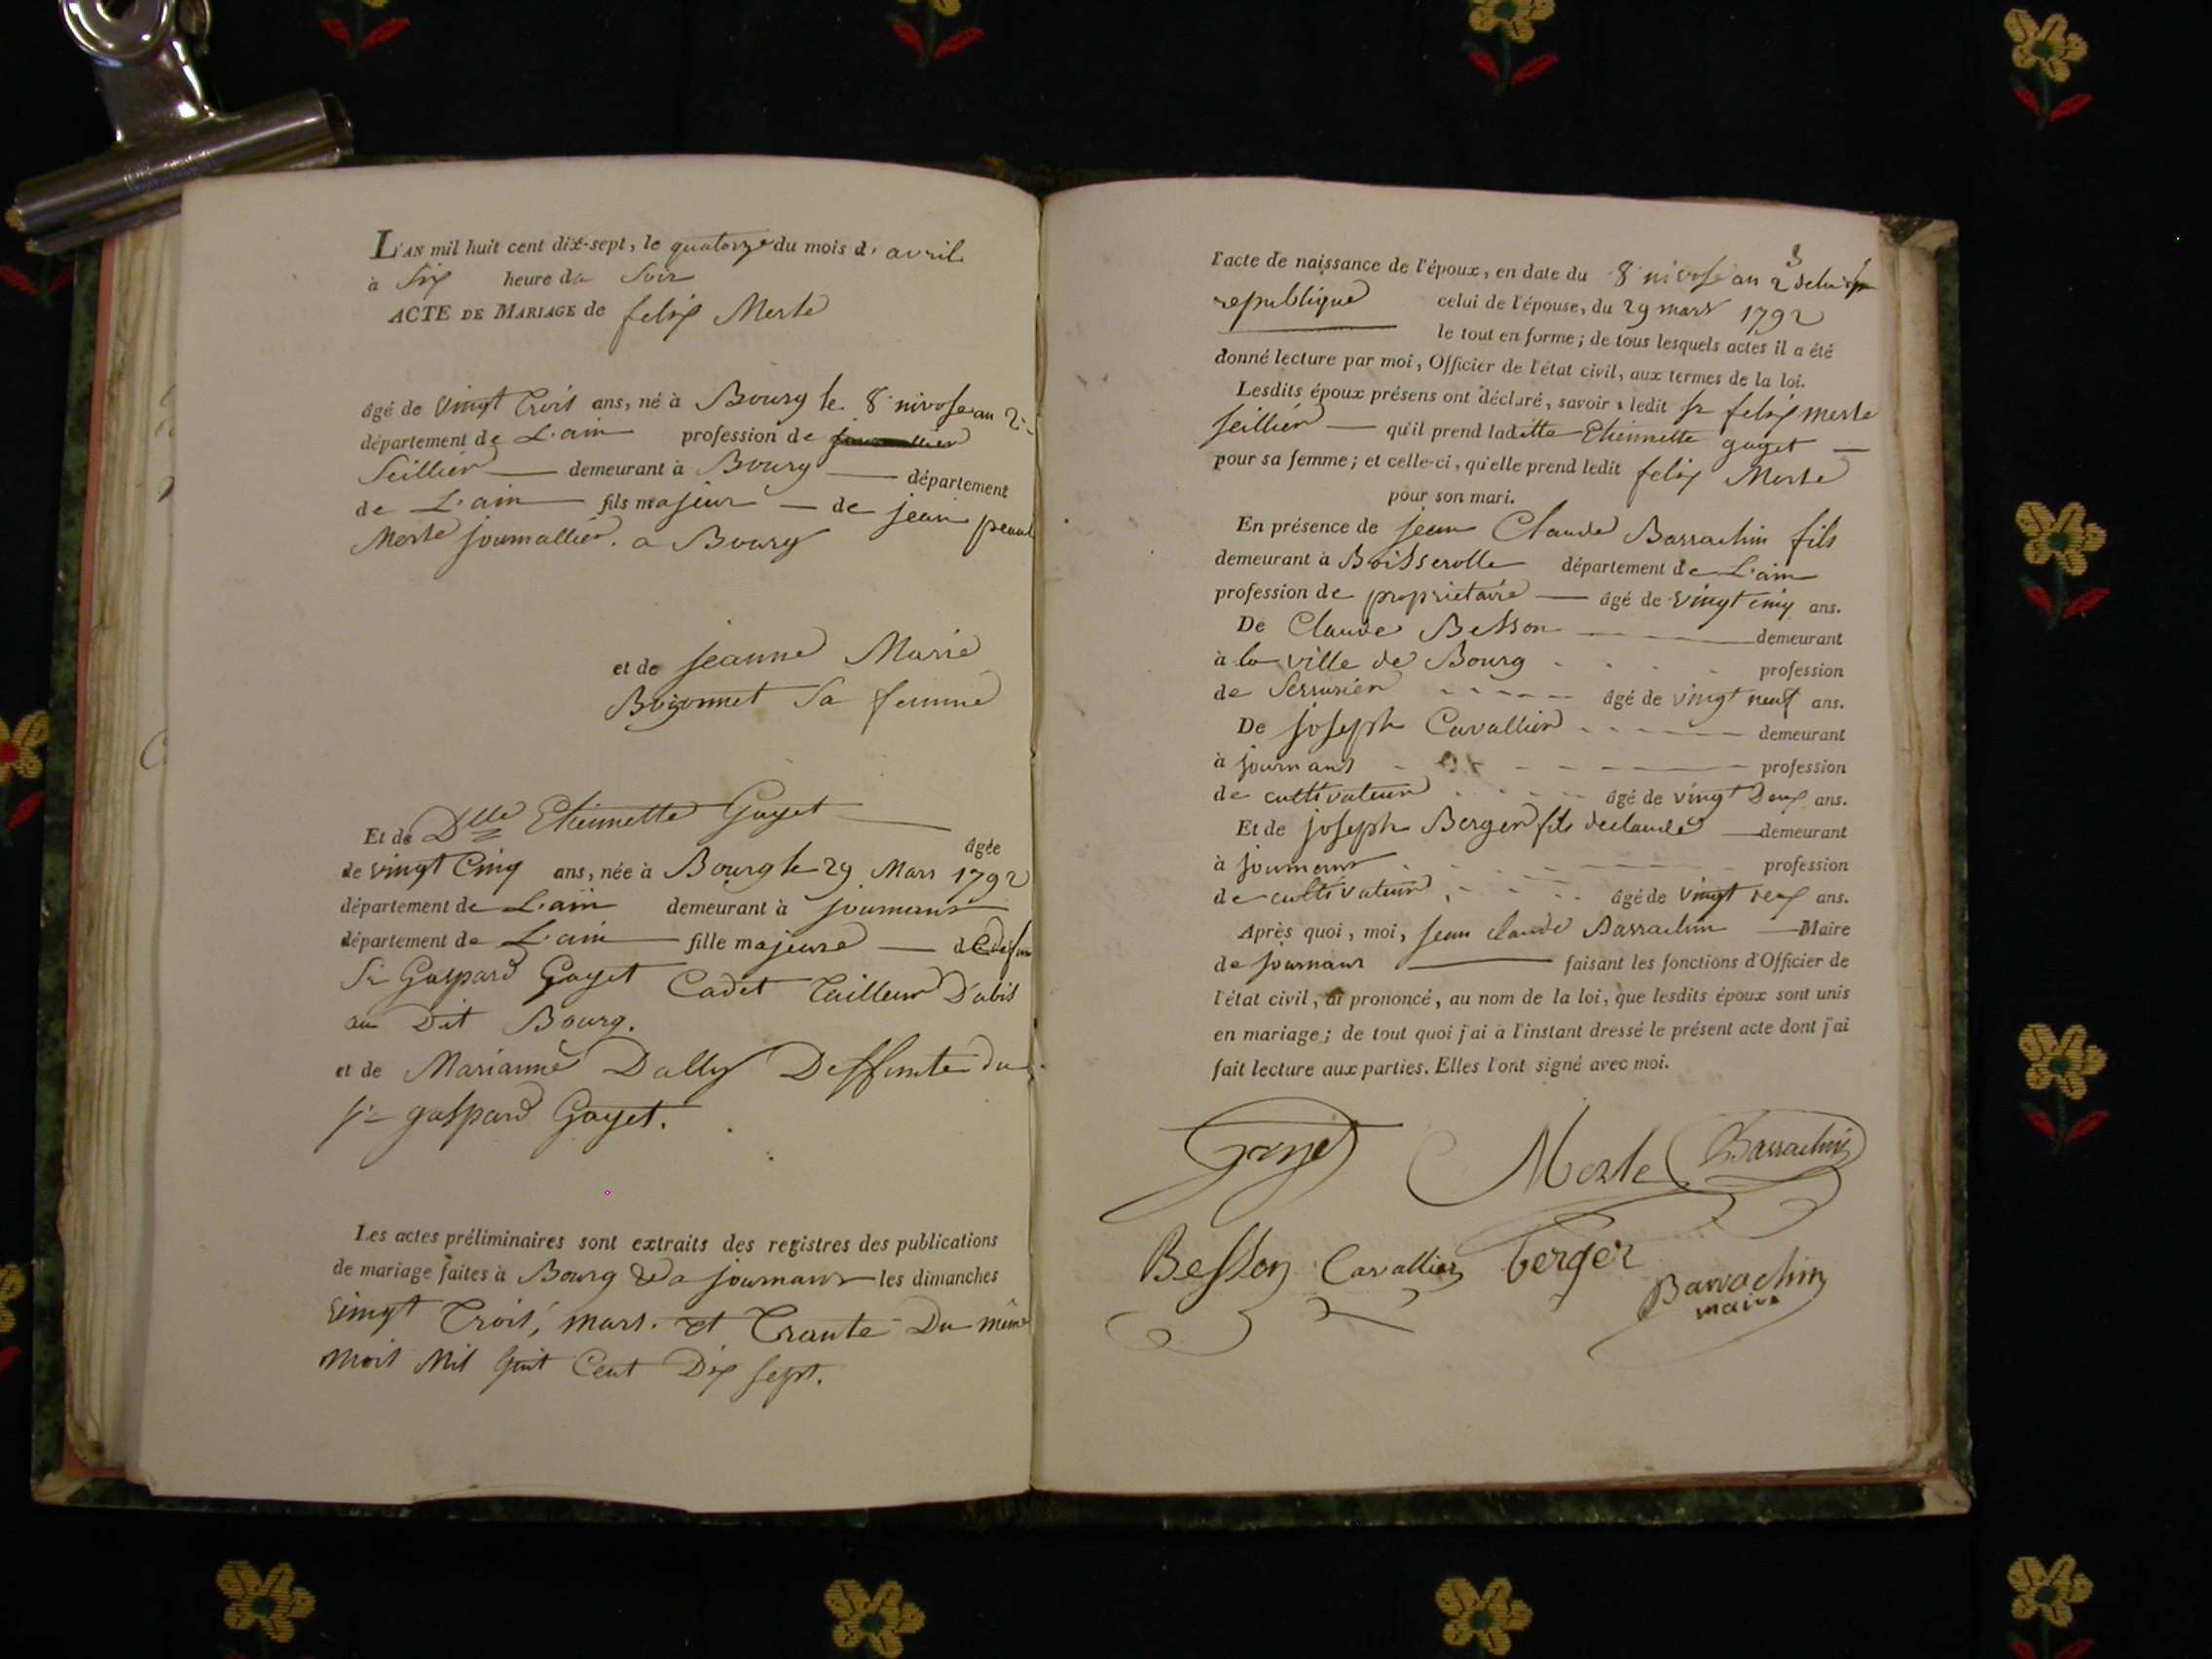 L'AN mil huit cent dix-sept, le quatorze du mois d'avril
à Six heure du Soir
ACTE DE MARIAGE de felix Merle
âgé de vingt trois ans, né à Bourg le 8 nivose an 2
département de L'ain profession de
Seillier — demeurant à Bourg — département
de L'ain — fils majeur — de jean
Merle journallier. a Bourg
et de jeanne Marie
sa femme
Et de Dlle Etiennette Gayet —
âgée
de vingt Cinq ans, née à Bourg le 29 Mars 1792
département de L'ain demeurant à journans
département de L'ain — fille majeure — de
Sr Gaspard Gayet Cadet Tailleur D'abis
au Dit Bourg.
et de Marianne Dally Deffunte du
Sr gaspard Gayet.
Les actes préliminaires sont extraits des registres des publications
de mariage faites à Bourg & a journans — les dimanches
vingt Trois, mars. et Trante Du même
mois Mil huit Cent Dix Sept.
l'acte de naissance de l'époux, en date du 8 nivose an 2 3
republique celui de l'épouse, du 29 mars 1792
le tout en forme; de tous lesquels actes il a été
donné lecture par moi, Officier de l'état civil, aux termes de la loi.
Lesdits époux présens ont déclaré, savoir, ledit Sr felix merle
seillier — qu'il prend laditte Etiennette gayet —
pour sa femme; et celle-ci, qu'elle prend ledit felix Merle
pour son mari.
En présence de jean Claude Barrachin fils
demeurant à Boisserolle département de L'ain
profession de proprietaire — âgé de vingt cinq ans.
De Claude Besson — demeurant
à la ville de Bourg profession
de Serrurier âgé de vingt neuf ans.
De joseph Cavallier demeurant
à journans profession
de cultivateur âgé de vingt Deux ans.
Et de joseph Berger fils de claude — demeurant
à journans profession
de cultivateur âgé de vingt ans.
Après quoi, moi, jean claude Barrachin — Maire
de journans — faisant les fonctions d'Officier de
l'état civil, ai prononcé, au nom de la loi, que lesdits époux sont unis
en mariage; de tout quoi j'ai à l'instant dressé le présent acte dont j'ai
fait lecture aux parties. Elles l'ont signé avec moi.
Gayet Merle Barrachin
Besson Cavallier berger
Barrachin
maire